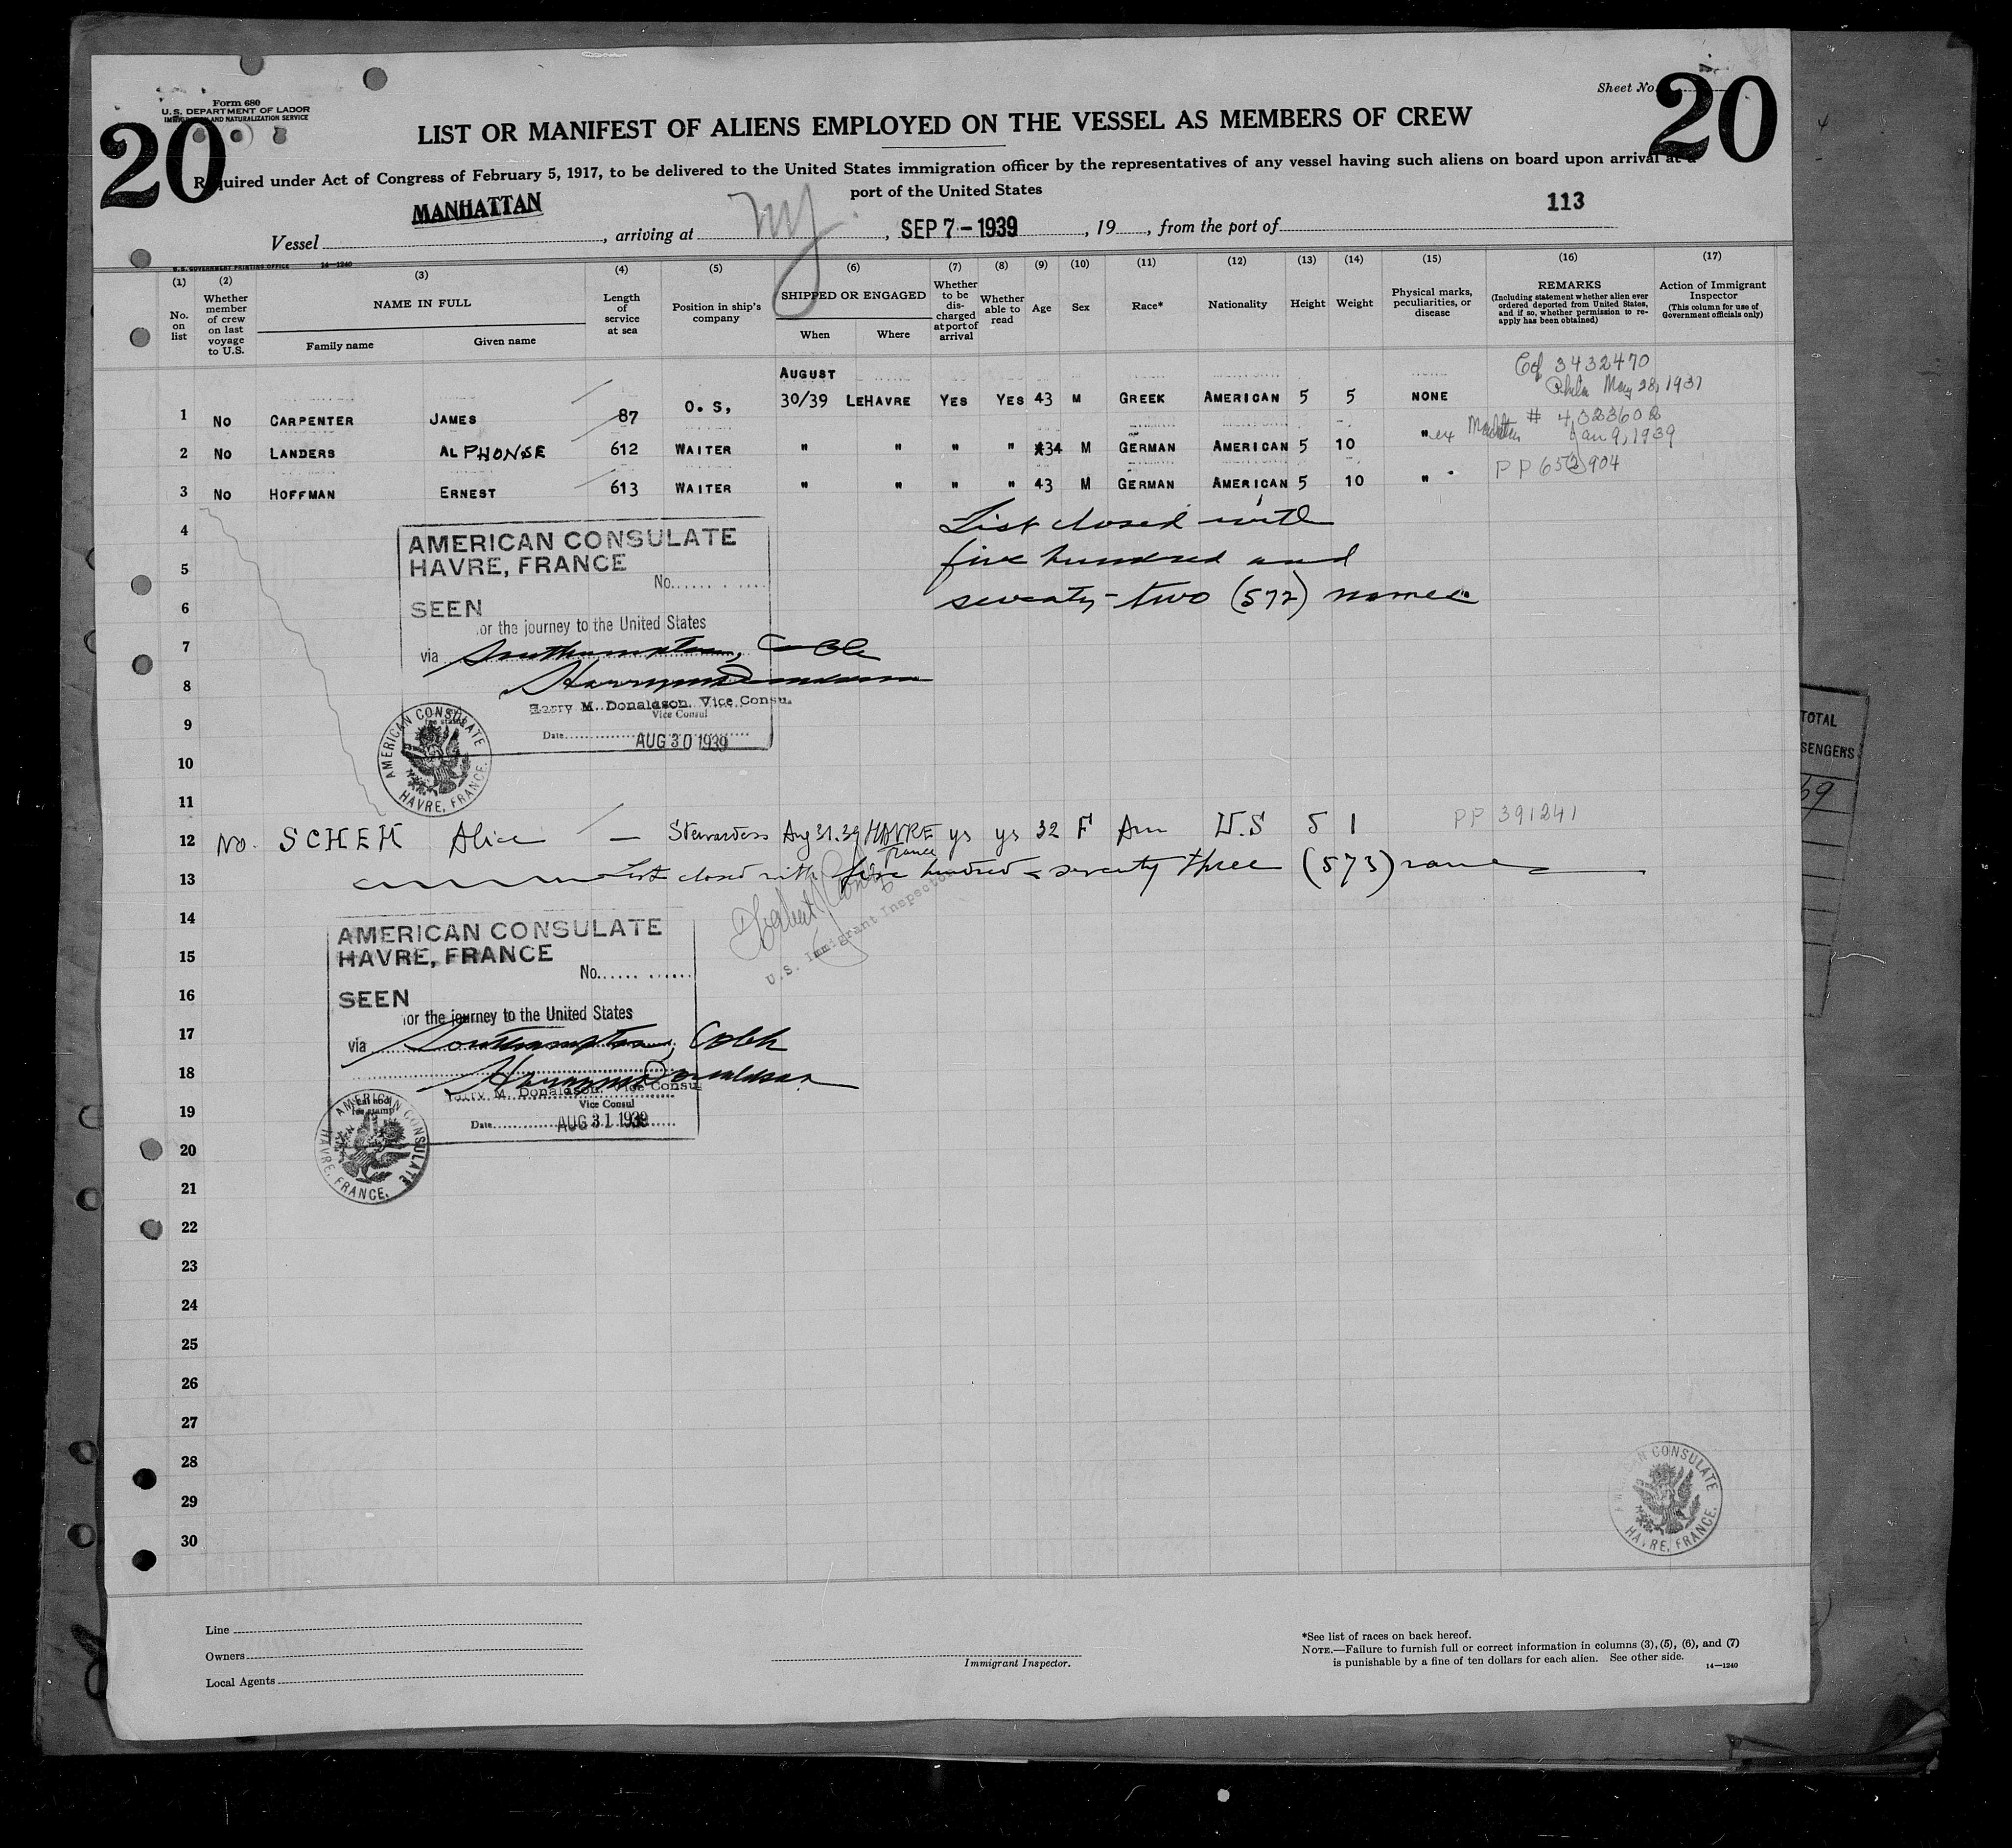 Form 680
U. S. DEPARTMENT OF LABOR
IMMIGRATION AND NATURALIZATION SERVICE
Sheet No.
20
20
LIST OR MANIFEST OF ALIENS EMPLOYED ON THE VESSEL AS MEMBERS OF CREW
Required under Act of Congress of February 5, 1917, to be delivered to the United States immigration officer by the representatives of any vessel having such aliens on board upon arrival at a
port of the United States
113
Vessel MANHATTAN, arriving at NY, SEP 7-1939, 19, from the port of
U.S. GOVERNMENT PRINTING OFFICE 14-1240
(1) (2) (3) (4) (5) (6) (7) (8) (9) (10) (11) (12) (13) (14) (15) (16) (17)
No. on list
Whether member of crew on last voyage to U.S.
NAME IN FULL
Family name Given name
Length of service at sea
Position in ship's company
SHIPPED OR ENGAGED
When Where
Whether to be discharged at port of arrival
Whether able to read
Age
Sex
Race*
Nationality
Height
Weight
Physical marks, peculiarities, or disease
REMARKS
(Including statement whether alien ever ordered deported from United States, and if so, whether permission to re-apply has been obtained)
Action of Immigrant Inspector
(This column for use of Government officials only)
AUGUST
1 No CARPENTER JAMES 87 O. S, 30/39 LEHAVRE YES YES 43 M GREEK AMERICAN 5 5 NONE
3432470
Phila May 28, 1931
2 No LANDERS ALPHONSE 612 WAITER " " " " 34 M GERMAN AMERICAN 5 10 "
ex Manhattan # 4023602
Jan 9, 1939
3 No HOFFMAN ERNEST 613 WAITER " " " " 43 M GERMAN AMERICAN 5 10 "
PP 652904
4
List closed with
AMERICAN CONSULATE
HAVRE, FRANCE
5
five hundred and
No.
6
seventy-two (572) names
SEEN
for the journey to the United States
7
via Southampton, Cobh
8
Harry M Donaldson
Harry M. Donaldson. Vice Consul
Vice Consul
9
Date AUG 30 1939
AMERICAN CONSULATE
HAVRE, FRANCE.
10
11
12 No. SCHEM Alice — Stewardess Aug 31.39 HAVRE ys ys 32 F Am U.S 5 1 PP 391241
France
13 List closed with five hundred & seventy three (573) names
14
U.S. Immigrant Inspector
AMERICAN CONSULATE
15
HAVRE, FRANCE
No.
16
SEEN
for the journey to the United States
17
via Southampton, Cobh
18
Harry M Donaldson
Harry M. Donaldson. Vice Consul
Vice Consul
19
Date AUG 31 1939
AMERICAN CONSULATE
fee stamp
HAVRE, FRANCE.
20
21
22
23
24
25
26
27
28
29
30
AMERICAN CONSULATE
HAVRE, FRANCE.
TOTAL
SENGERS
69
Line
Owners
Local Agents
Immigrant Inspector.
*See list of races on back hereof.
NOTE.—Failure to furnish full or correct information in columns (3), (5), (6), and (7)
is punishable by a fine of ten dollars for each alien. See other side.
14—1240